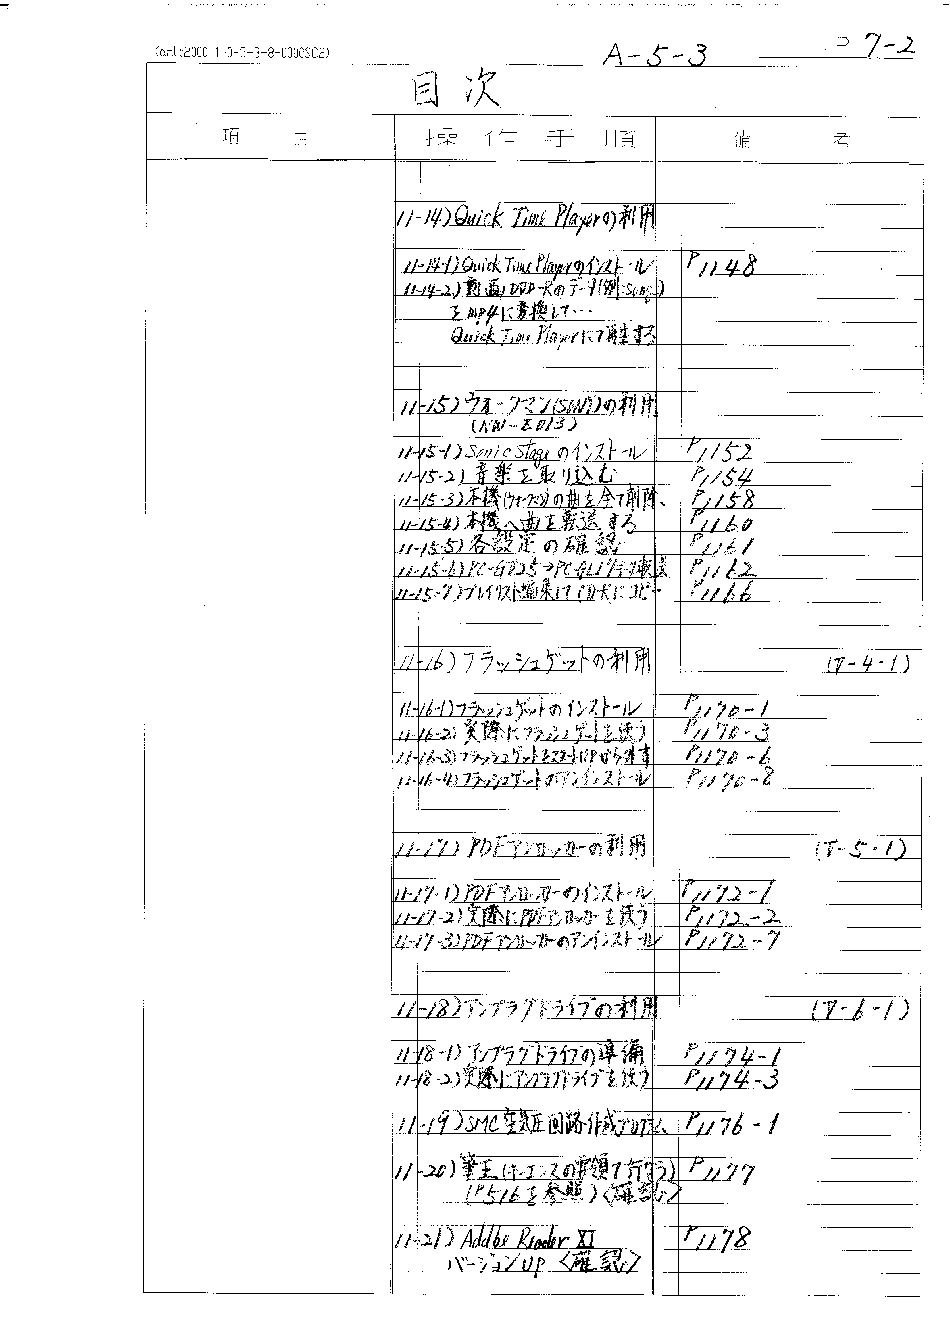 A-5-3
P 7-2
目次
項 目 操作手順 備 考
11-14) Quick Time Playerの利用
11-14-1) Quick Time Playerのインストール P1148
11-14-2) 動画DVD-Rのデータ(例:
をmp4に変換して…
Quick Time Playerにて再生する
11-15) ウォークマン(SONY)の利用
(NW-E013)
11-15-1) Sonic Stageのインストール P1152
11-15-2) 音楽を取り込む P1154
11-15-3) 本機(ウォークマン)の曲を全て削除 P1158
11-15-4) 本機へ曲を転送する P1160
11-15-5) 各設定の確認 P1161
11-15-6) P1162
11-15-7) プレイリスト編集にてCD-Rにコピー P1166
11-16) フラッシュゲットの利用 (7-4-1)
11-16-1) フラッシュゲットのインストール P1170-1
11-16-2) 実際にフラッシュゲットを使う P1170-3
11-16-3) フラッシュゲットをスタートUPから外す P1170-6
11-16-4) フラッシュゲットのアンインストール P1170-8
11-17) PDFアンロッカーの利用 (7-5-1)
11-17-1) PDFアンロッカーのインストール P1172-1
11-17-2) 実際にPDFアンロッカーを使う P1172-2
11-17-3) PDFアンロッカーのアンインストール P1172-7
11-18) アンプラグドライブの利用 (7-6-1)
11-18-1) アンプラグドライブの準備 P1174-1
11-18-2) 実際にアンプラグドライブを使う P1174-3
11-19) SMC空気圧回路作成プログラム P1176-1
11-20) 筆王(キーエンスの要領で行なう) P1177
(P516を参照)<確認>
11-21) Addbe Reader XI P1178
バージョンUP <確認>